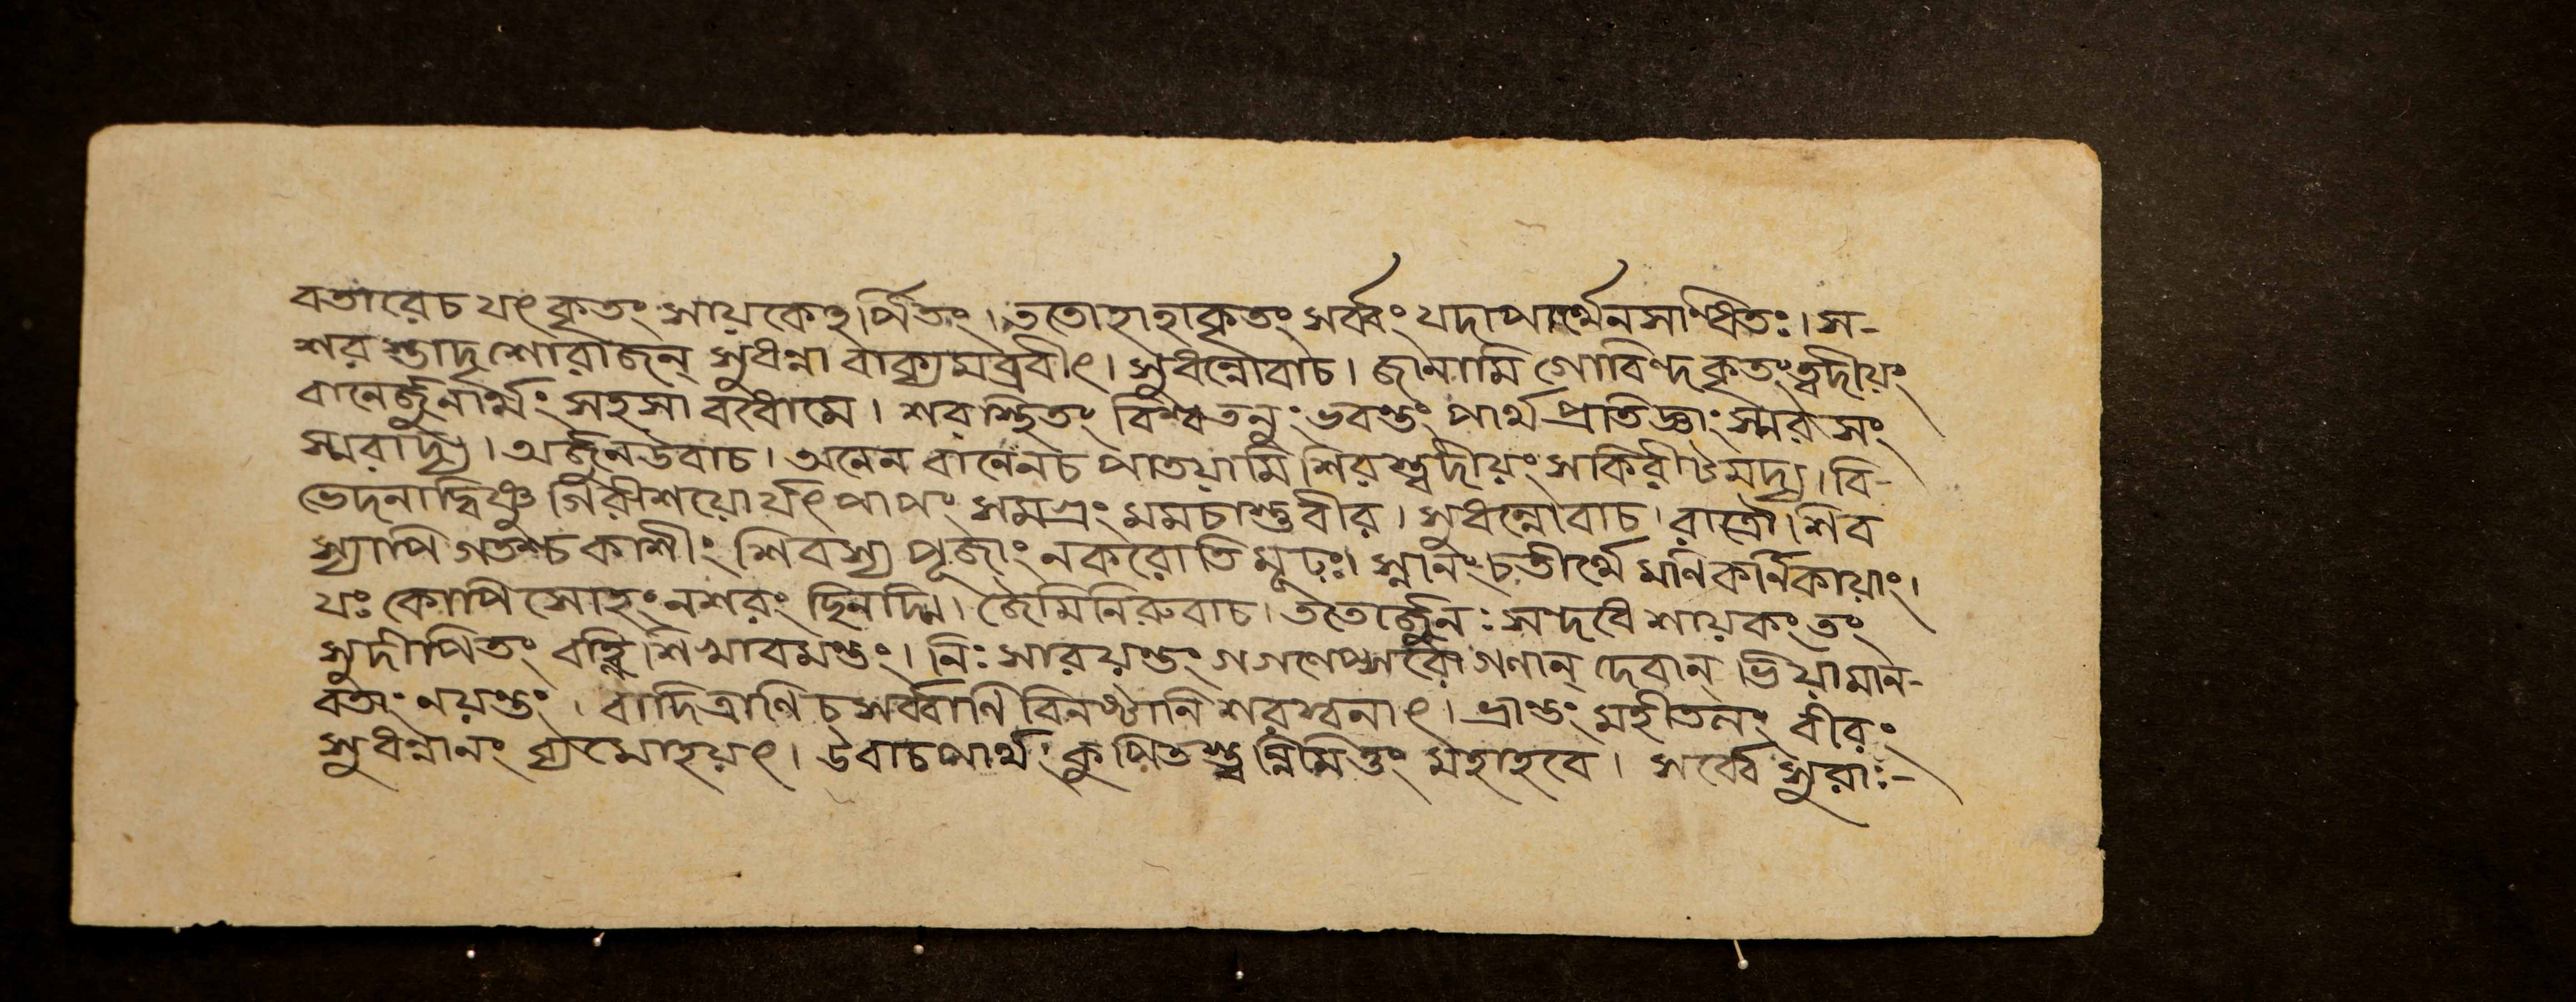 বতারেচ যৎ কৃতং সায়কেহর্পিতং। ততোহাহাকৃতং সর্ব্বং যদাপার্থেনসান্ধিতঃ। স-
শর স্তাদৃশোরাজন্ সুধন্না বাক্যমব্রবীৎ। সুধন্নোবাচ। জানামি গোবিন্দকৃতং ত্বদীয়ং
বানের্জুনার্থং সহসা বধোমে। শরস্থিতং বিশ্বতনুং ভবন্তং পার্থপ্রতিজ্ঞাং স্মর সং
স্মরাদ্য। অর্জুনউবাচ। অনেন বানেনচ পাতয়ামি শিরস্ত্বদীয়ং সকিরীটমদ্য। বি-
ভেদনাদ্বিষ্ণু গিরীশয়োর্যৎ পাপং সমগ্রং মমচাস্তুবীর। সুধন্নোবাচ। রাত্রৌ শিব
স্যাপি গতশ্চ কাশীং শিবস্য পূজাং নকরোতি মূঢ়ঃ। স্নানং চতীর্থে মণিকর্ণিকায়াং।
যঃ কোপি সোহং নশরং ছিনদ্মি। জৈমিনিরুবাচ। ততোর্জুনঃ সন্দধে শায়কং তং
সুদীপিতং বহ্নি শিখাবমন্তং। নিঃ সারয়ন্তং গগণেপ্সরো গণান্ দেবান্ ভিয়ামান-
বতাং নয়ন্তং। বাদিত্রাণি চ সর্ব্বাণি বিনষ্টানি শরস্বনাৎ। ভ্রান্তং মহীতলং বীরং
সুধন্নানং ব্যমোহয়ৎ। উবাচপার্থঃ কুপিতস্ত্বন্নিমিত্তং মহাহবে। সর্ব্বে সুরাঃ-